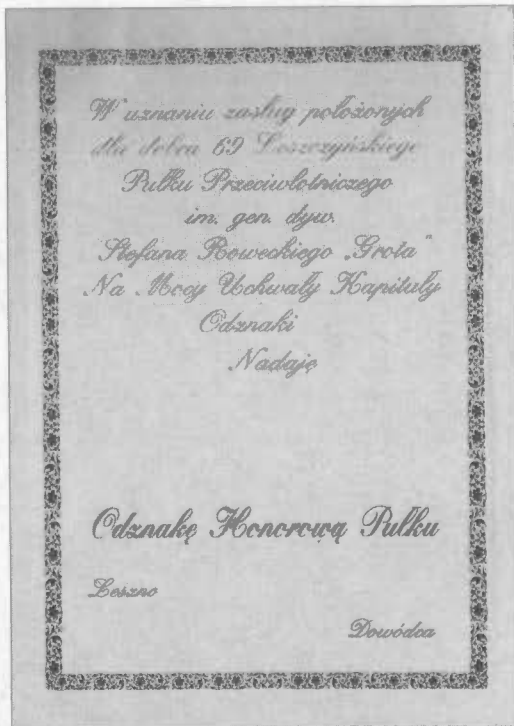 W uznaniu zasług położonych
dla dobra 69 Leszczyńskiego
Pułku Przeciwlotniczego
im. gen. dyw.
Stefana Roweckiego „Grota”
Na Mocy Uchwały Kapituły
Odznaki
Nadaję
Odznakę Honorową Pułku
Leszno
Dowódca